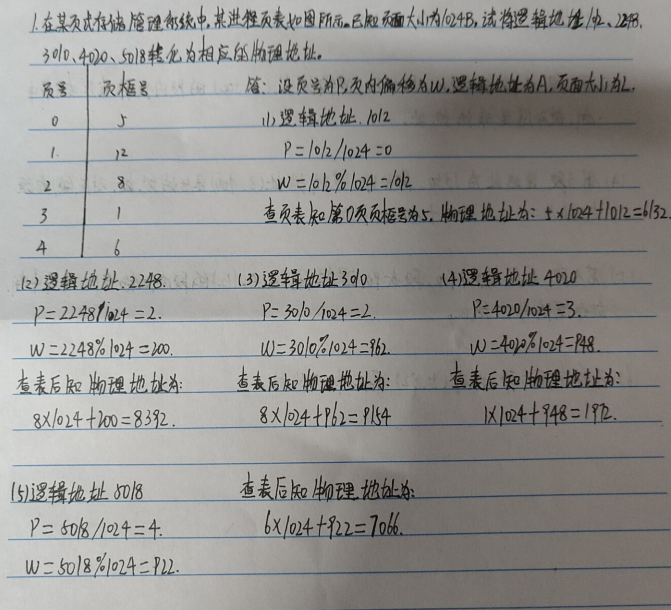 1.在某页式存储管理系统中,某进程页表如图所示.已知页面大小为1024B,试将逻辑地址1012、2248、
3010、4020、5018转化为相应的物理地址。
页号 页框号
0 5
1 12
2 8
3 1
4 6
答:设页号为P,页内偏移为W,逻辑地址为A,页面大小为L.
(1)逻辑地址.1012
P=1012/1024=0
W=1012%1024=1012
查页表知第0页页框号为5,物理地址为:5×1024+1012=6132.
(2)逻辑地址.2248.
P=2248/1024=2.
W=2248%1024=200.
查表后知物理地址为:
8×1024+200=8392.
(3)逻辑地址3010
P=3010/1024=2.
W=3010%1024=962.
查表后知物理地址为:
8×1024+962=9154
(4)逻辑地址4020
P=4020/1024=3.
W=4020%1024=948.
查表后知物理地址为:
1×1024+948=1972.
(5)逻辑地址5018
P=5018/1024=4.
W=5018%1024=922.
查表后知物理地址为:
6×1024+922=7066.